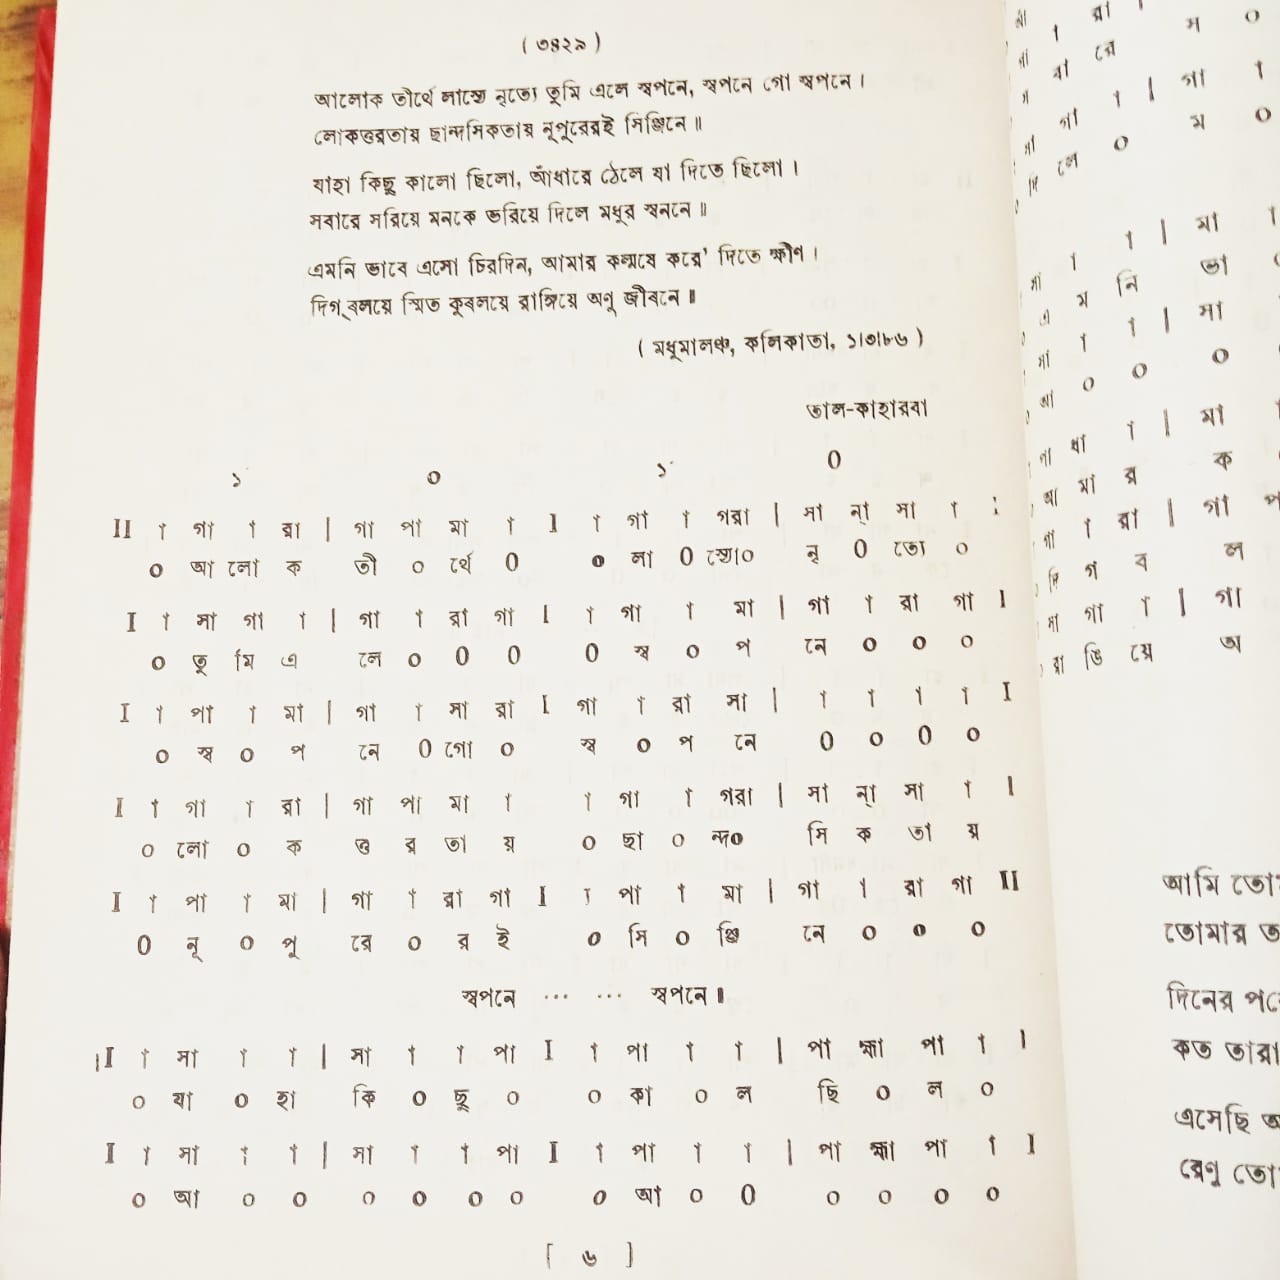 ( ৩৪২৯ )
আলোক তীর্থে লাস্যে নৃত্যে তুমি এলে স্বপনে, স্বপনে গো স্বপনে ।
লোকত্তরতায় ছান্দসিকতায় নূপুরেরই সিঞ্জিনে ॥
যাহা কিছু কালো ছিলো, আঁধারে ঠেলে যা দিতে ছিলো ।
সবারে সরিয়ে মনকে ভরিয়ে দিলে মধুর স্বননে ॥
এমনি ভাবে এসো চিরদিন, আমার কল্মষে করে' দিতে ক্ষীণ ।
দিগ্‌বলয়ে স্মিত কুবলয়ে রাঙ্গিয়ে অণু জীবনে ॥
( মধুমালঞ্চ, কলিকাতা, ১।৩।৮৬ )
তাল-কাহারবা
১´ ০ ১´ ০
II া গা া রা | গা পা মা া I া গা া গরা | সা ন্া সা া :
০ আ লো ক তী ০ র্থে ০ ০ লা ০ স্যে০ নৃ ০ ত্যে ০
I া সা গা া | গা া রা গা I া গা া মা | গা া রা গা I
০ তু মি এ লে ০ ০ ০ ০ স্ব ০ প নে ০ ০ ০
I া পা া মা | গা া সা রা I গা া রা সা | া া া া I
০ স্ব ০ প নে ০ গো ০ স্ব ০ প নে ০ ০ ০ ০
I া গা া রা | গা পা মা া া গা া গরা | সা ন্া সা া I
০ লো ০ ক ত্ত র তা য় ০ ছা ০ ন্দ০ সি ক তা য়
I া পা া মা | গা া রা গা I া পা া মা | গা া রা গা II
০ নূ ০ পু রে ০ র ই ০ সি ০ ঞ্জি নে ০ ০ ০
স্বপনে ... ... স্বপনে ॥
II া সা া া | সা া া পা I া পা া া | পা হ্মা পা া I
০ যা ০ হা কি ০ ছু ০ ০ কা ০ ল ছি ০ ল ০
I া সা া া | সা া া পা I া পা া া | পা হ্মা পা া I
০ আ ০ ০ ০ ০ ০ ০ ০ আ ০ ০ ০ ০ ০ ০
[ ৬ ]
আমি
তোমার
দিনের
কত তারা
এসেছি
রেণু